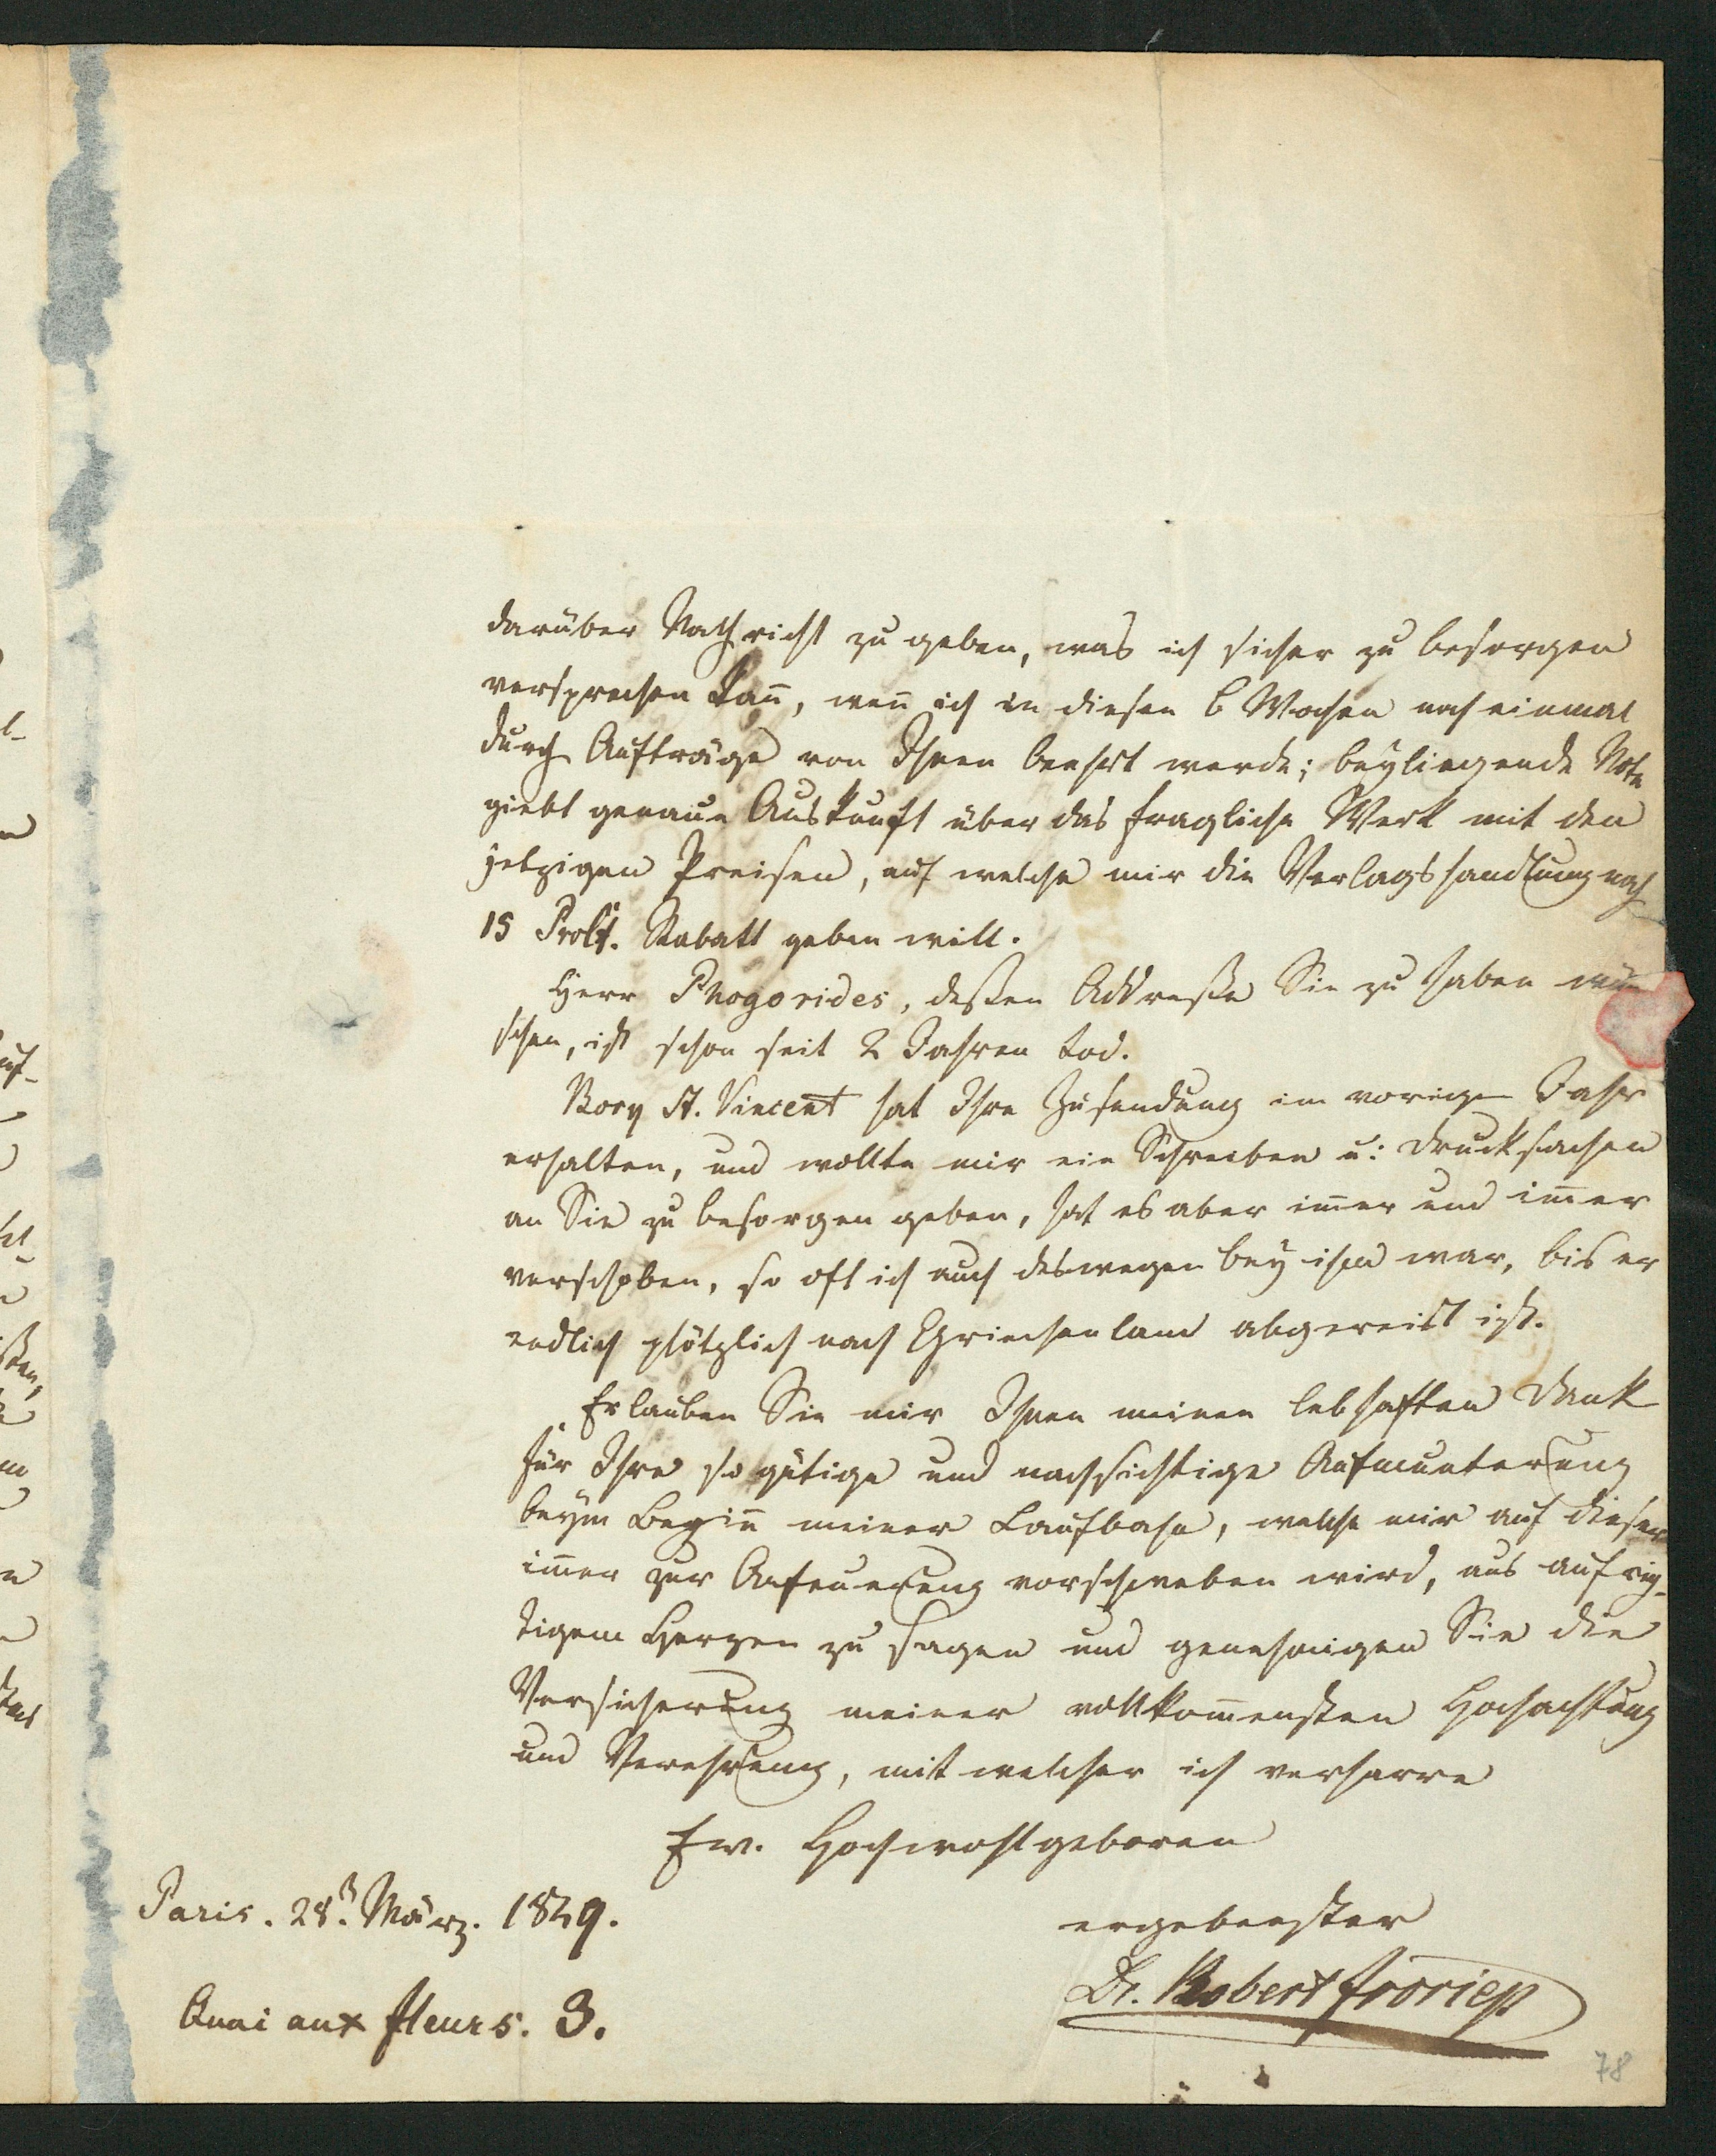 darüber Nachricht zu geben, was ich sicher zu besorgen
versprechen kan̄, wen̄ ich in diesen 6 Wochen noch einmal
durch Aufträge von Ihnen beehrt werde; beyliegende Note
giebt genaue Auskunft über das fragliche Werk mit den
jetzigen Preisen, auf welche mir die Verlagshandlung noch
15 ProCt. Rabatt geben will.
Herr Phogorides, deßen Addreße Sie zu haben wün
schen, ist schon seit 2 Jahren tod.
Bory St. Vincent hat Ihre Zusendung im vorigen Jahr
erhalten, und wollte mir ein Schreiben u: Drucksachen
an Sie zu besorgen geben, hat es aber im̄er und im̄er
verschoben, so oft ich auch deswegen bey ihm war, bis er
endlich plötzlich nach Griechenland abgereist ist.
Erlauben Sie mir Ihnen meinen lebhaften Dank
für Ihre so gütige und nachsichtige Aufmunterung
beym Begin̄ meiner Laufbahn, welche mir auf dieser
im̄er zur Anfeuerung vorschweben wird, aus aufrich-
tigem Herzen zu sagen und genehmigen Sie die
Versicherung meiner vollkom̄ensten Hochachtung
und Verehrung, mit welcher ich verharre
Ew. Hochwohlgeboren
Paris. 28. März. 1829.
ergebenster
Dr. Robert Froriep
Quai aux fleurs. 3.
78